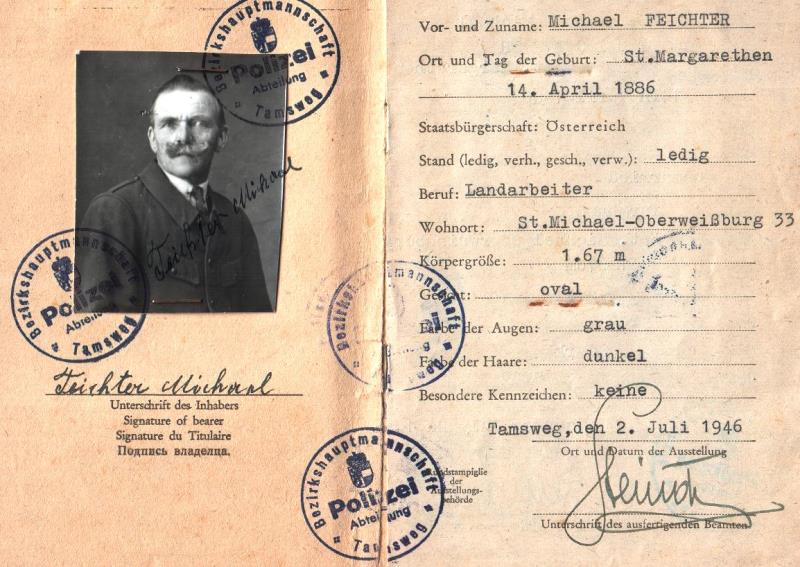 Bezirkshauptmannschaft
Polizei
Abteilung
Tamsweg
Feichter Michael
Bezirkshauptmannschaft
Polizei
Abteilung
Tamsweg
Feichter Michael
Unterschrift des Inhabers
Signature of bearer
Signature du Titulaire
Подпись владелца.
Bezirkshauptmannschaft
Polizei
Abteilung
Tamsweg
Vor- und Zuname: Michael FEICHTER
Ort und Tag der Geburt: St.Margarethen
14. April 1886
Staatsbürgerschaft: Österreich
Stand (ledig, verh., gesch., verw.): ledig
Beruf: Landarbeiter
Wohnort: St.Michael-Oberweißburg 33
Körpergröße: 1.67 m
Gesicht: oval
Farbe der Augen: grau
Farbe der Haare: dunkel
Besondere Kennzeichen: keine
Tamsweg,den 2. Juli 1946
Ort und Datum der Ausstellung
Rundstampiglie
der
Ausstellungs-
behörde
Unterschrift des ausfertigenden Beamten